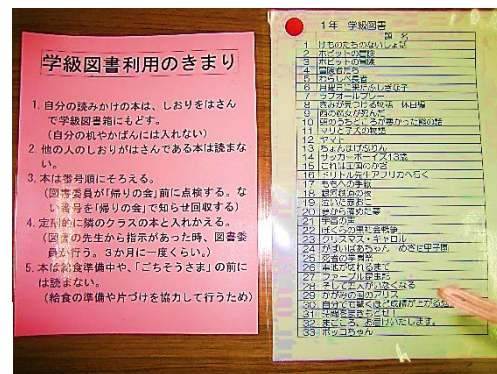 学級図書利用のきまり
1. 自分の読みかけの本は、しおりをはさん
で学級図書箱にもどす。
(自分の机やかばんには入れない)
2. 他の人のしおりがはさんである本は読まな
い。
3. 本は番号順にそろえる。
(図書委員が「帰りの会」前に点検する。な
い番号を「帰りの会」で知らせ回収する)
4. 定期的に隣のクラスの本と入れかえる。
(図書の先生から指示があった時、図書委
員が行う。3か月に一度くらい。)
5. 本は給食準備中や、「ごちそうさま」の前に
は読まない。
(給食の準備や片づけを協力して行うため)
1年 学級図書
題 名
1 けものたちのないしょ話
2 ホビットの冒険
3 ホビットの冒険
4 冒険者たち
5 わらしべ長者
6
7 ラブオールプレー
8 きみが見つける物語 休日編
9 西の魔女が死んだ
10
11 マリと子犬の物語
12 ヤマト
13 ちょんまげぷりん
14 サッカーボーイズ13歳
15 これは王国のかぎ
16 ドリトル先生アフリカへ行く
17 ももへの手紙
18 銀河鉄道の夜
19 泣いた赤おに
20
21
22 ぼくらの黒会社戦争
23 クリスマス・キャロル
24 がばいばあちゃん めざせ甲子園
25 死者の学園祭
26
27 ファーブル昆虫記
28 そして五人がいなくなる
29 かがみの国のアリス
30
31
32 まごころ、お届けいたします。
33 ボッコちゃん